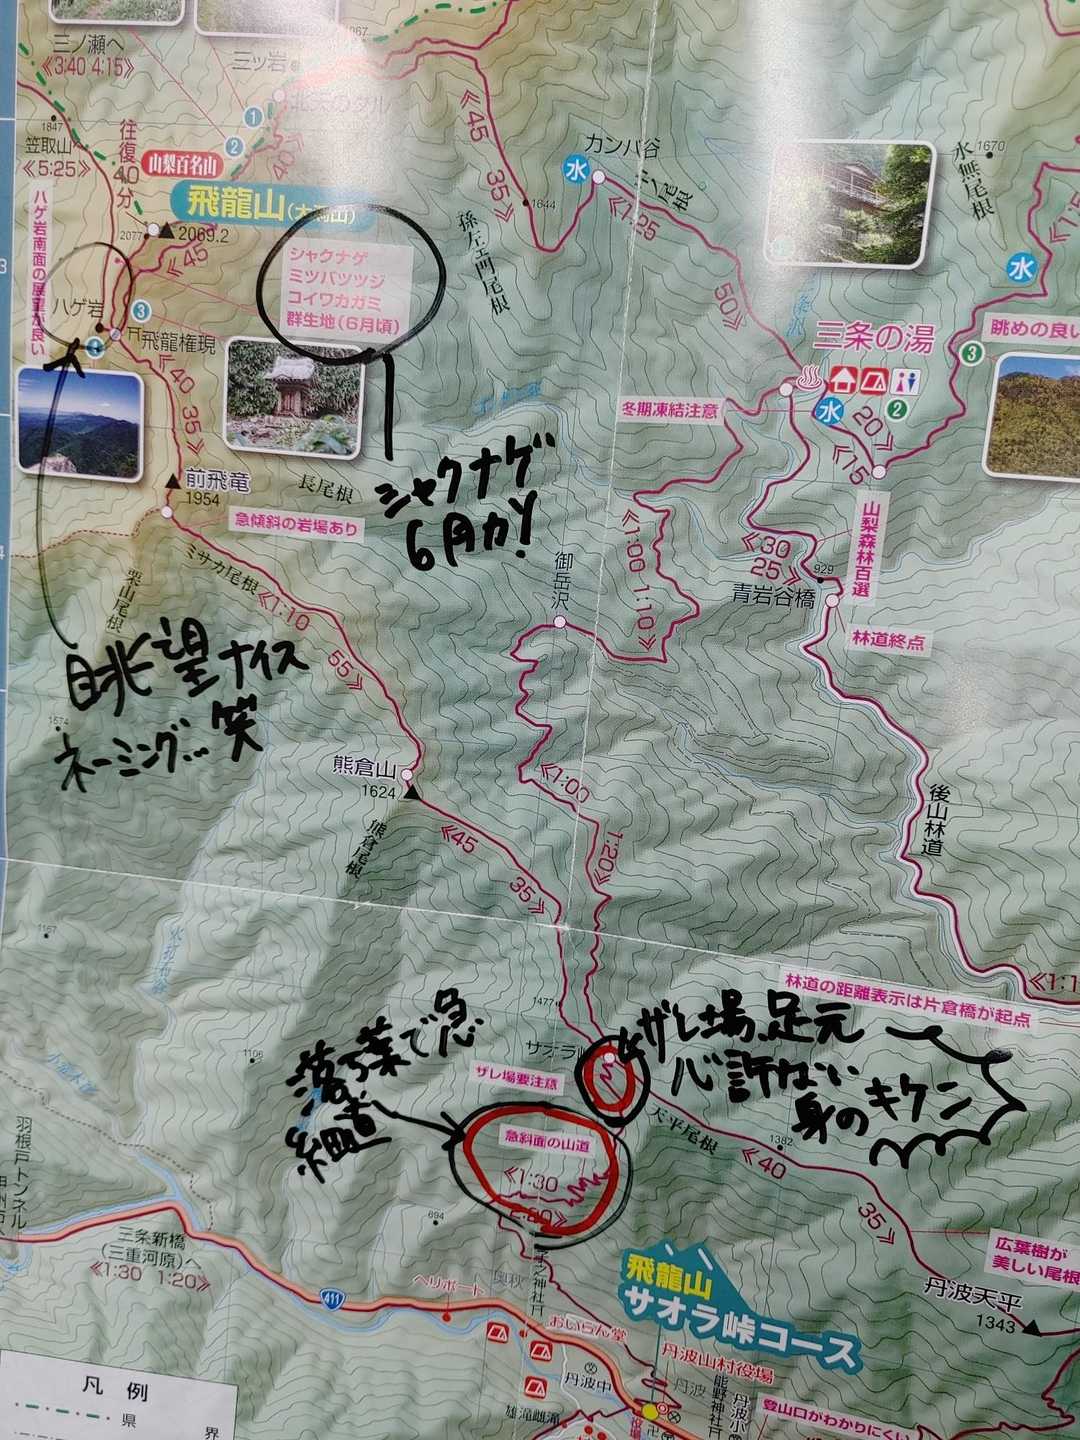 三ノ瀬へ
《3:40 4:15》
三ツ岩
1847
笠取山
《5:25》
往復40分
1
2
山梨百名山
飛龍山(大洞山)
2077
2069.2
《45
《45
35》
1644
カンバ谷
水
《1:25
50》
孫左エ門尾根
1670
水無尾根
水
ハゲ岩南面の展望が良い
シャクナゲ
ミツバツツジ
コイワカガミ
群生地(6月頃)
ハゲ岩
3
4
飛龍権現
《40
35》
三条の湯
眺めの良い
3
冬期凍結注意
水
2
20》
《15
前飛竜
1954
急傾斜の岩場あり
長尾根
シャクナゲ
6月カ!
ミサカ尾根
栗山尾根
《1:10
55》
御岳沢
《1:00 1:10》
《30
25》
929
青岩谷橋
山梨森林百選
林道終点
眺望ナイス
ネーミング…笑
1574
熊倉山
1624
熊倉尾根
《45
35》
《1:00
1:20》
後山林道
1167
火打石谷
《1:1
林道の距離表示は片倉橋が起点
1477
サオラ峠
ザレ場、足元
心許ない
身のキケン
1106
小常木谷
落葉で急
細道
ザレ場要注意
急斜面の山道
《1:30
天平尾根
1382
《40
35》
694
羽根戸トンネル
三条新橋
(三重河原)へ
《1:30 1:20》
411
ヘリポート
奥秋
おいらん堂
飛龍山
サオラ峠コース
広葉樹が
美しい尾根
丹波天平
1343
丹波山村役場
丹波中
丹波
熊野神社
丹波小
雄滝雌滝
役場
登山口がわかりにくい
凡例
県界